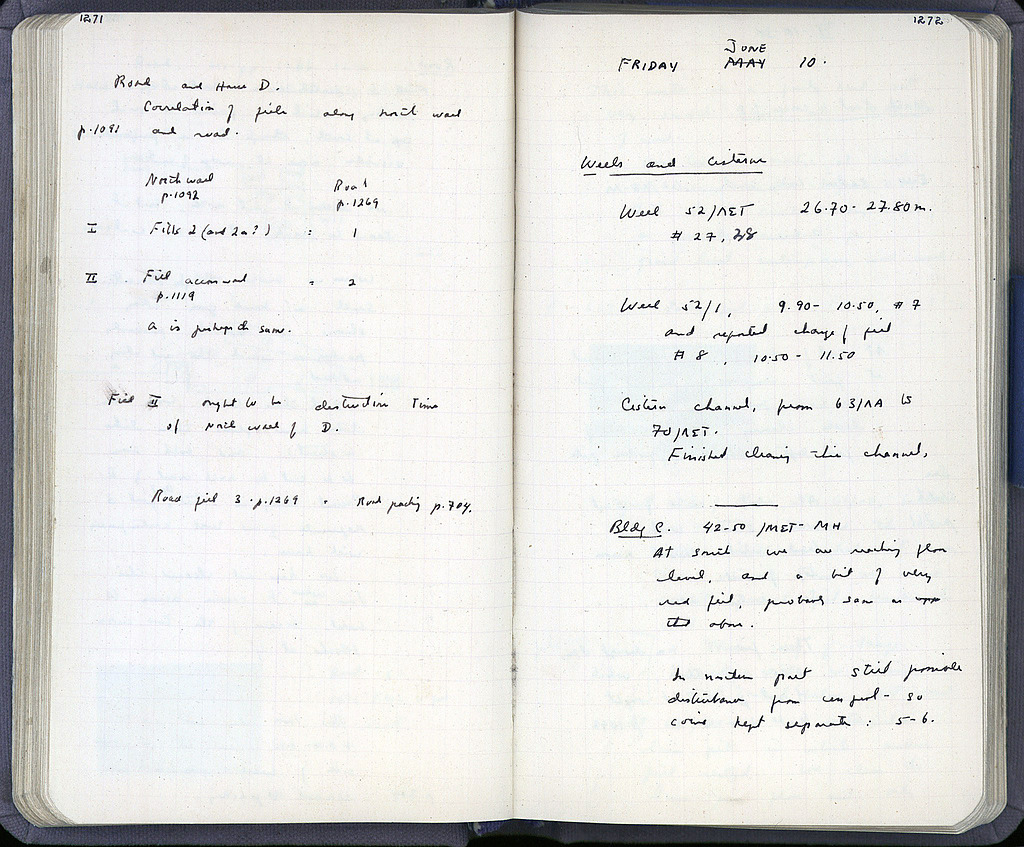 1271
Road and House D.
Correlation of fills along north wall
p.1091 and road.
North wall Road
p.1092 p.1269
I Fills 2 (and 2a?) = 1
II Fill across wall = 2
p.1119
a is perhaps same.
Fill II ought to be destruction time
of north wall of D.
Road fill 3 p.1269 = Road packing p.704.
1272
JUNE
FRIDAY MAY 10.
Wells and Cisterns
Well 52/ΛΕΤ 26.70 - 27.80 m.
# 27, 28
Well 52/1, 9.90 - 10.50, # 7
and reported change of fill
# 8, 10.50 - 11.50
Cistern channel, from 63/ΛΑ to
70/ΛΕΤ.
Finished cleaning the channel,
Bldg C. 42-50 / ΜΕΤ - ΜΗ
At south we are reaching floor
level, and a bit of very
red fill, probably same as
the above.
In northern part still possible
disturbance from - so
coins kept separate: 5-6.